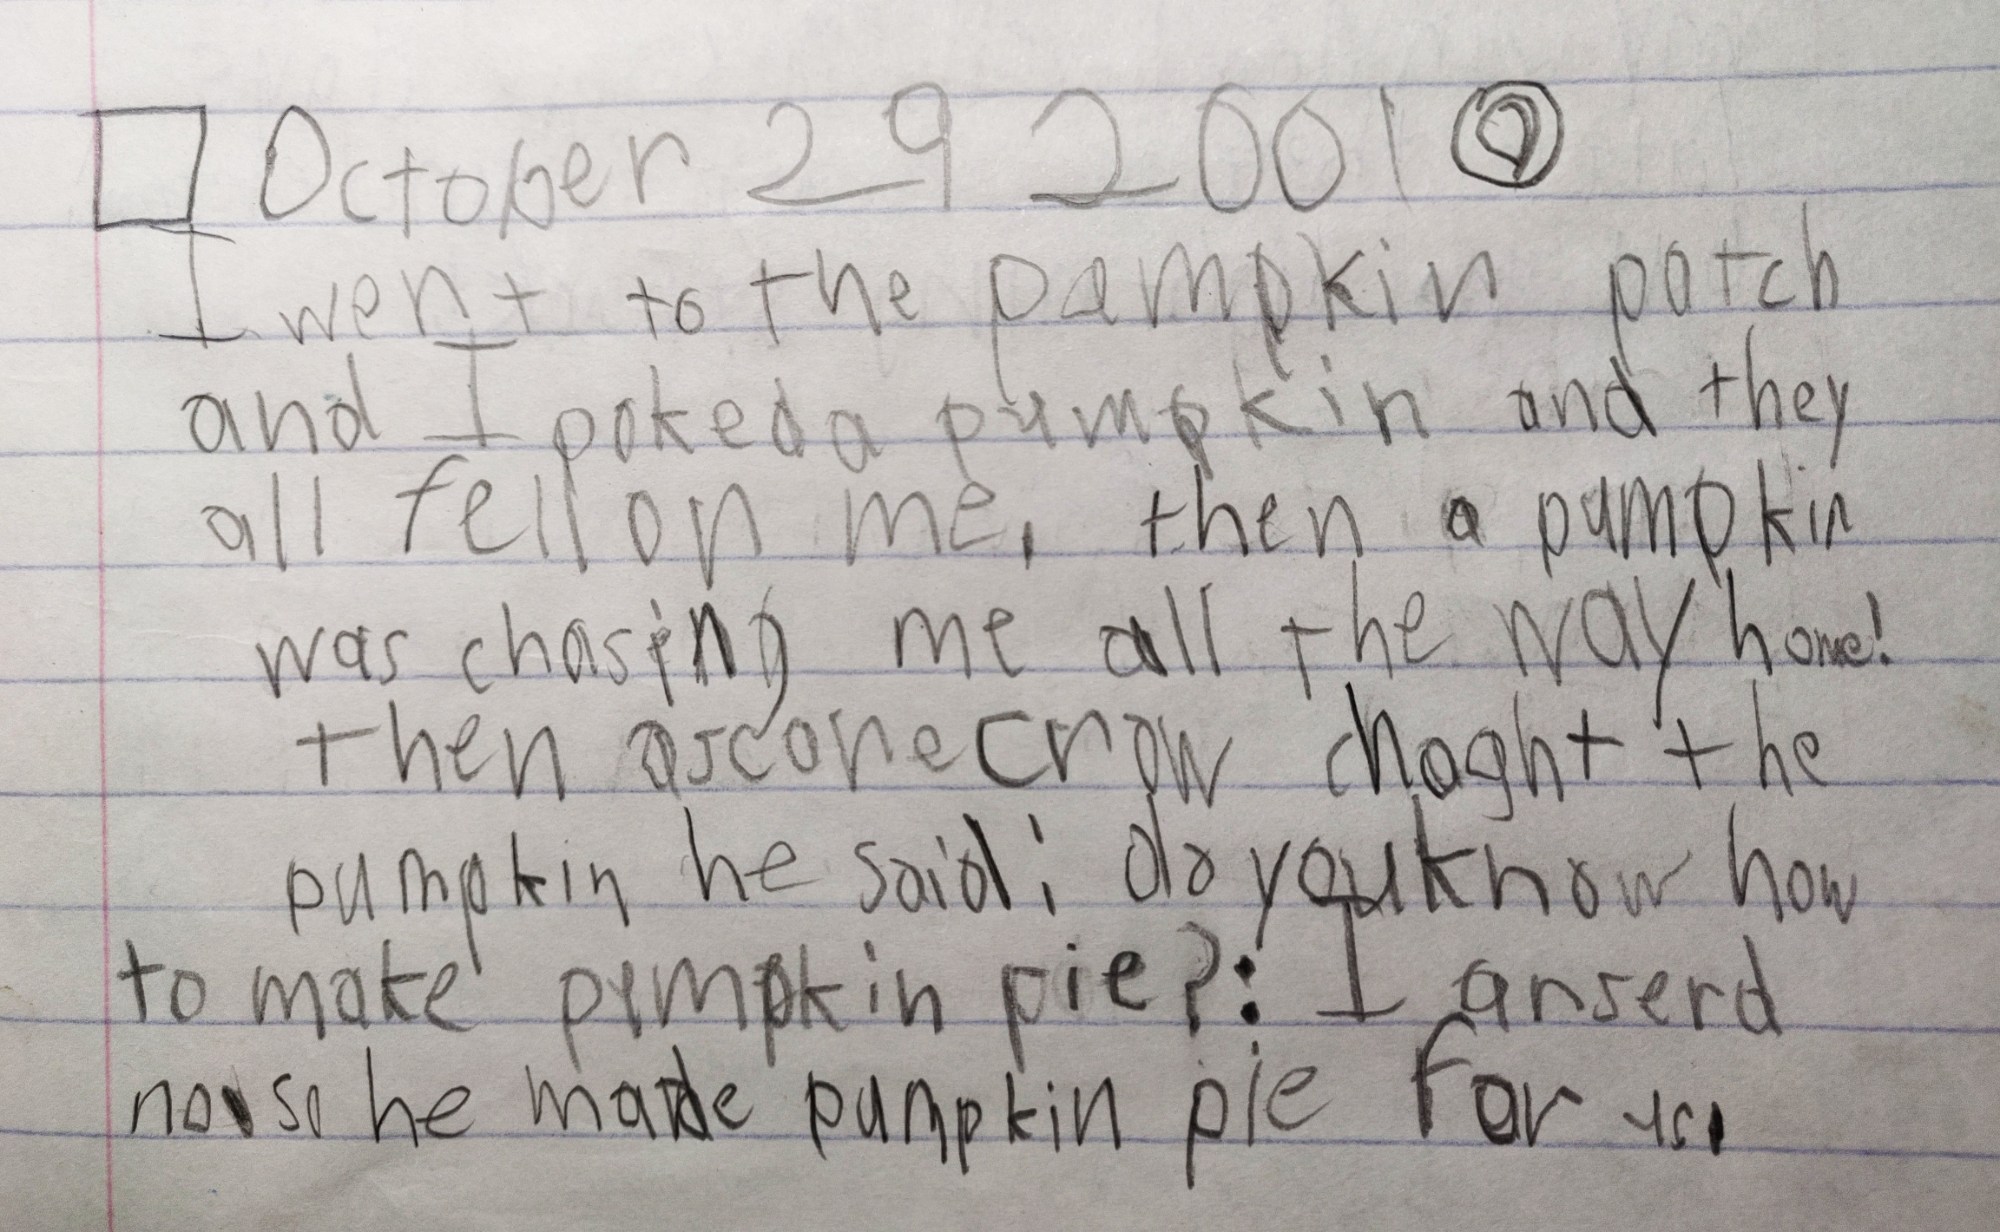 October 29 2001
I went to the pampkin patch
and I poked a pumpkin and they
all fell on me, then a pumpkin
was chasing me all the way home!
then a scarecrow chaght the
pumpkin he said: do you know how
to make pumpkin pie?: I anserd
no so he made pumpkin pie for us.